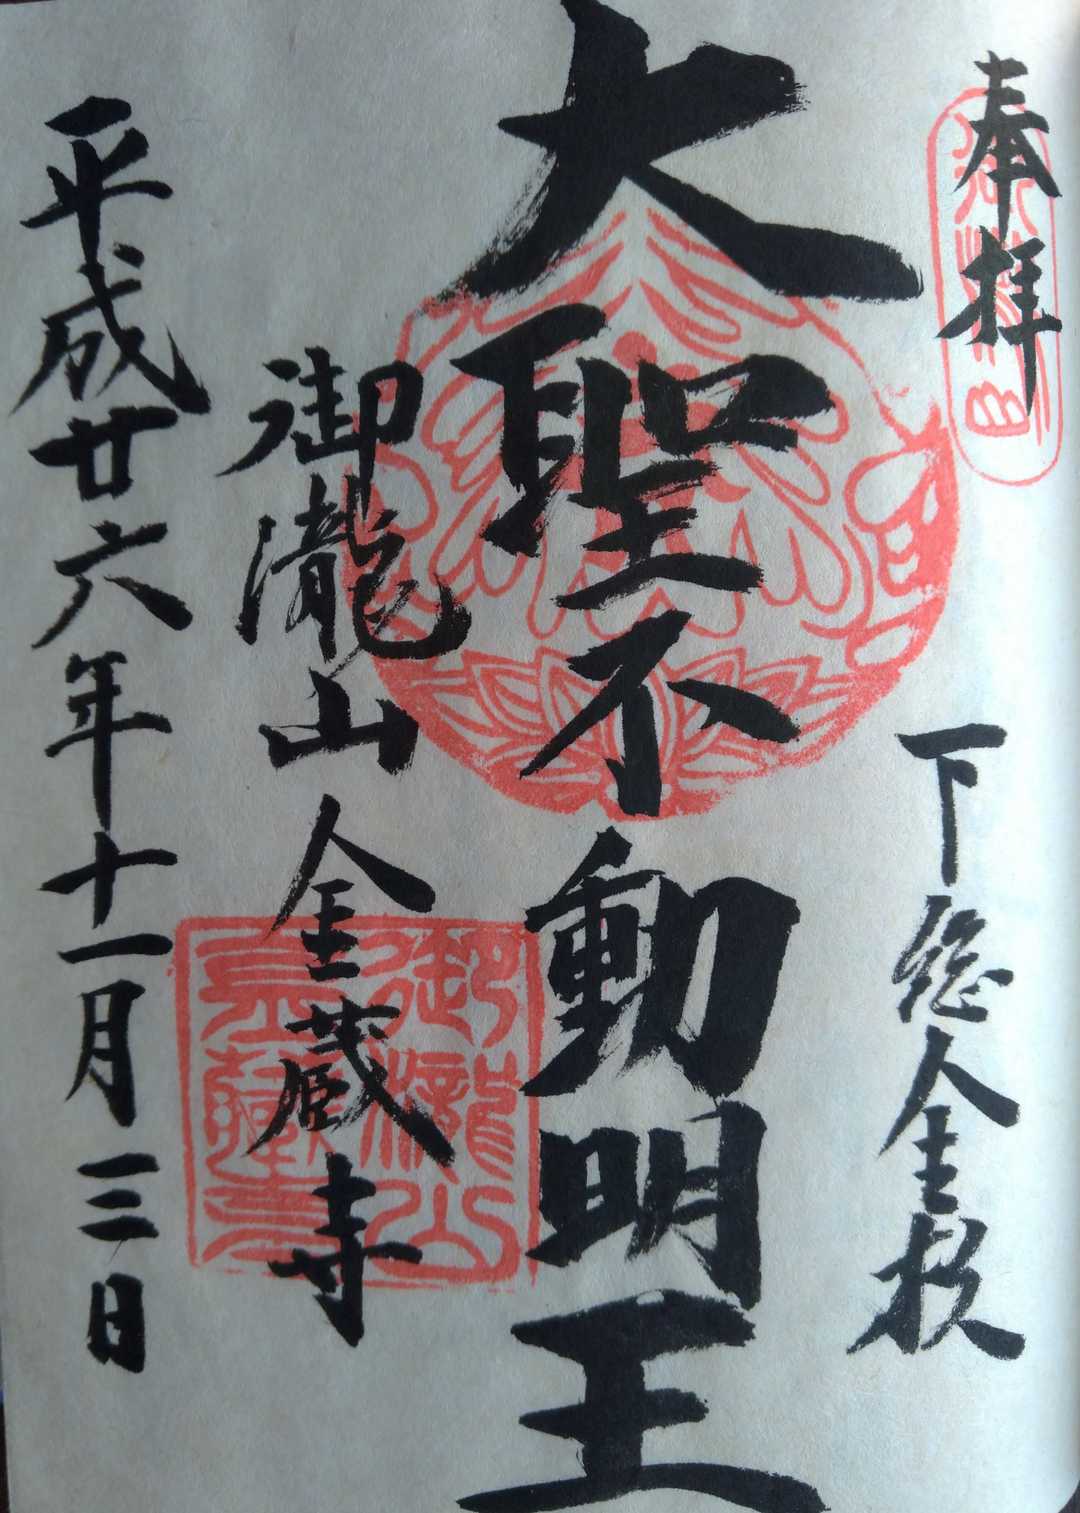 奉拝
下総金杦
大聖不動明王
御瀧山 金蔵寺
平成廿六年十一月三日
御瀧山
金藏寺